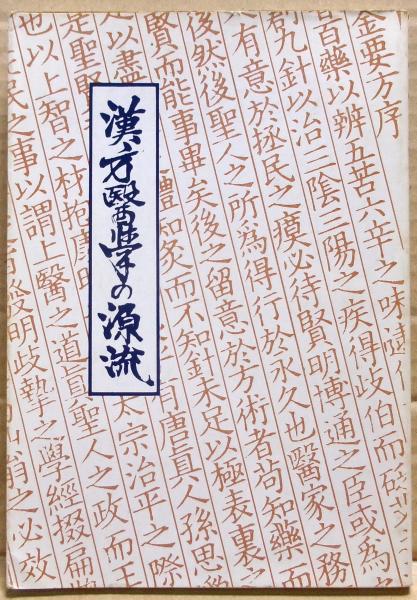 漢方醫學の源流
金要方序
百藥以辨五苦六辛之味
九針以治三陰三陽之疾得歧伯而砭
有意於拯民之瘼必待賢明博通之臣或為
後然後聖人之所為得行於永久也醫家之務
賢而能事畢矣後之留意於方術者苟知藥而
以盡
知灸而不知針未足以極表裏之
足聖賢
有唐真人孫思
也以上智之材抱康
太宗治平之際
民之事以謂上醫之道真聖人之政而王
發明歧摯之學經掇扁
之必效